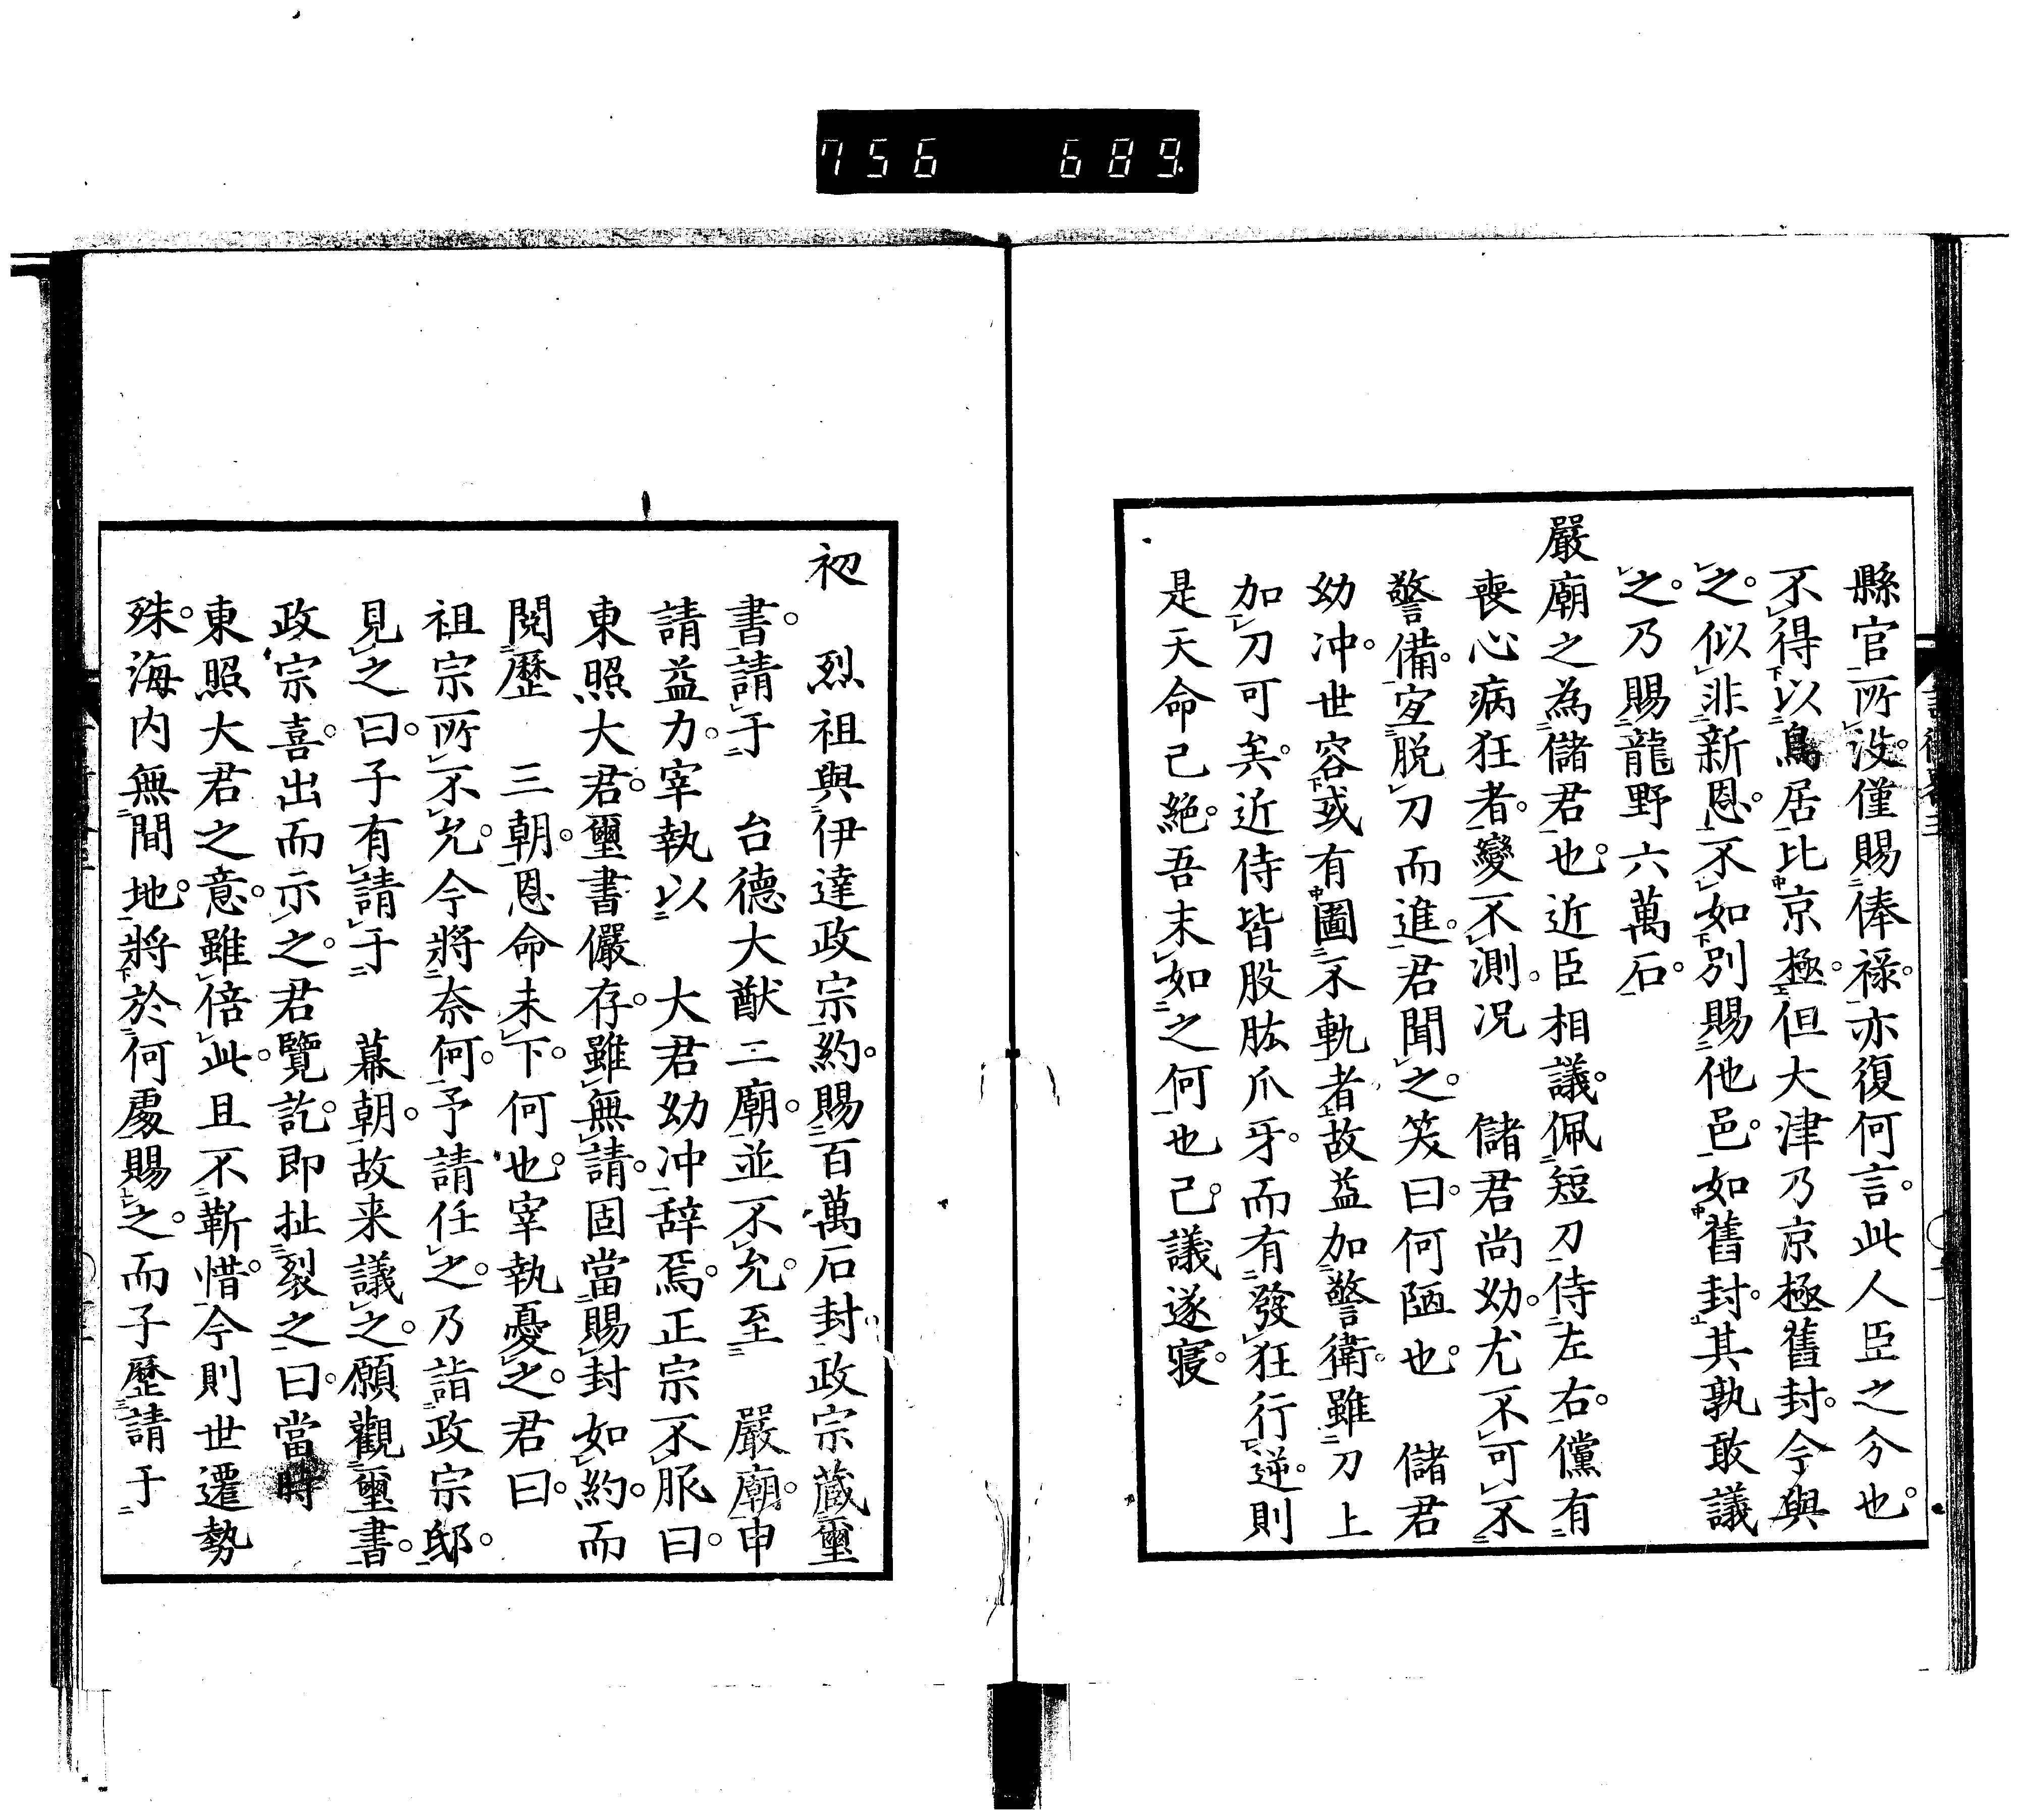 756 689.
縣官所没。僅賜俸禄。亦復何言。此人臣之分也。
不得以鳥居比京極。但大津乃京極舊封。今與
之。似非新恩。不如別賜他邑。如舊封。其孰敢議
之。乃賜龍野六萬石。
嚴廟之為儲君也。近臣相議。佩短刀侍左右。儻有
喪心病狂者。變不測。况 儲君尚幼。尤不可不
警備。宜脱刀而進。君聞之。笑曰。何陋也。 儲君
幼冲。世容或有圖不軌者。故益加警衛。雖刀上
加刀可矣。近侍皆股肱爪牙。而有發狂行逆。則
是天命已絶。吾末如之何也已。議遂寢。
初 烈祖與伊達政宗約。賜百萬石封。政宗藏璽
書。請于 台德大猷二廟。並不允。至 嚴廟。申
請益力。宰執以 大君幼冲辞焉。正宗不服曰。
東照大君。璽書儼存。雖無請。固當賜封如約。而
閲歷 三朝。恩命未下。何也。宰執憂之。君曰。
祖宗所不允。今將奈何。予請任之。乃詣政宗邸。
見之曰。子有請于 幕朝。故来議之。願觀璽書。
政宗喜出而示之。君覽訖。即扯裂之曰。當時
東照大君之意。雖倍此。且不靳惜。今則世遷勢
殊。海内無間地。將於何處賜之。而子歷請于